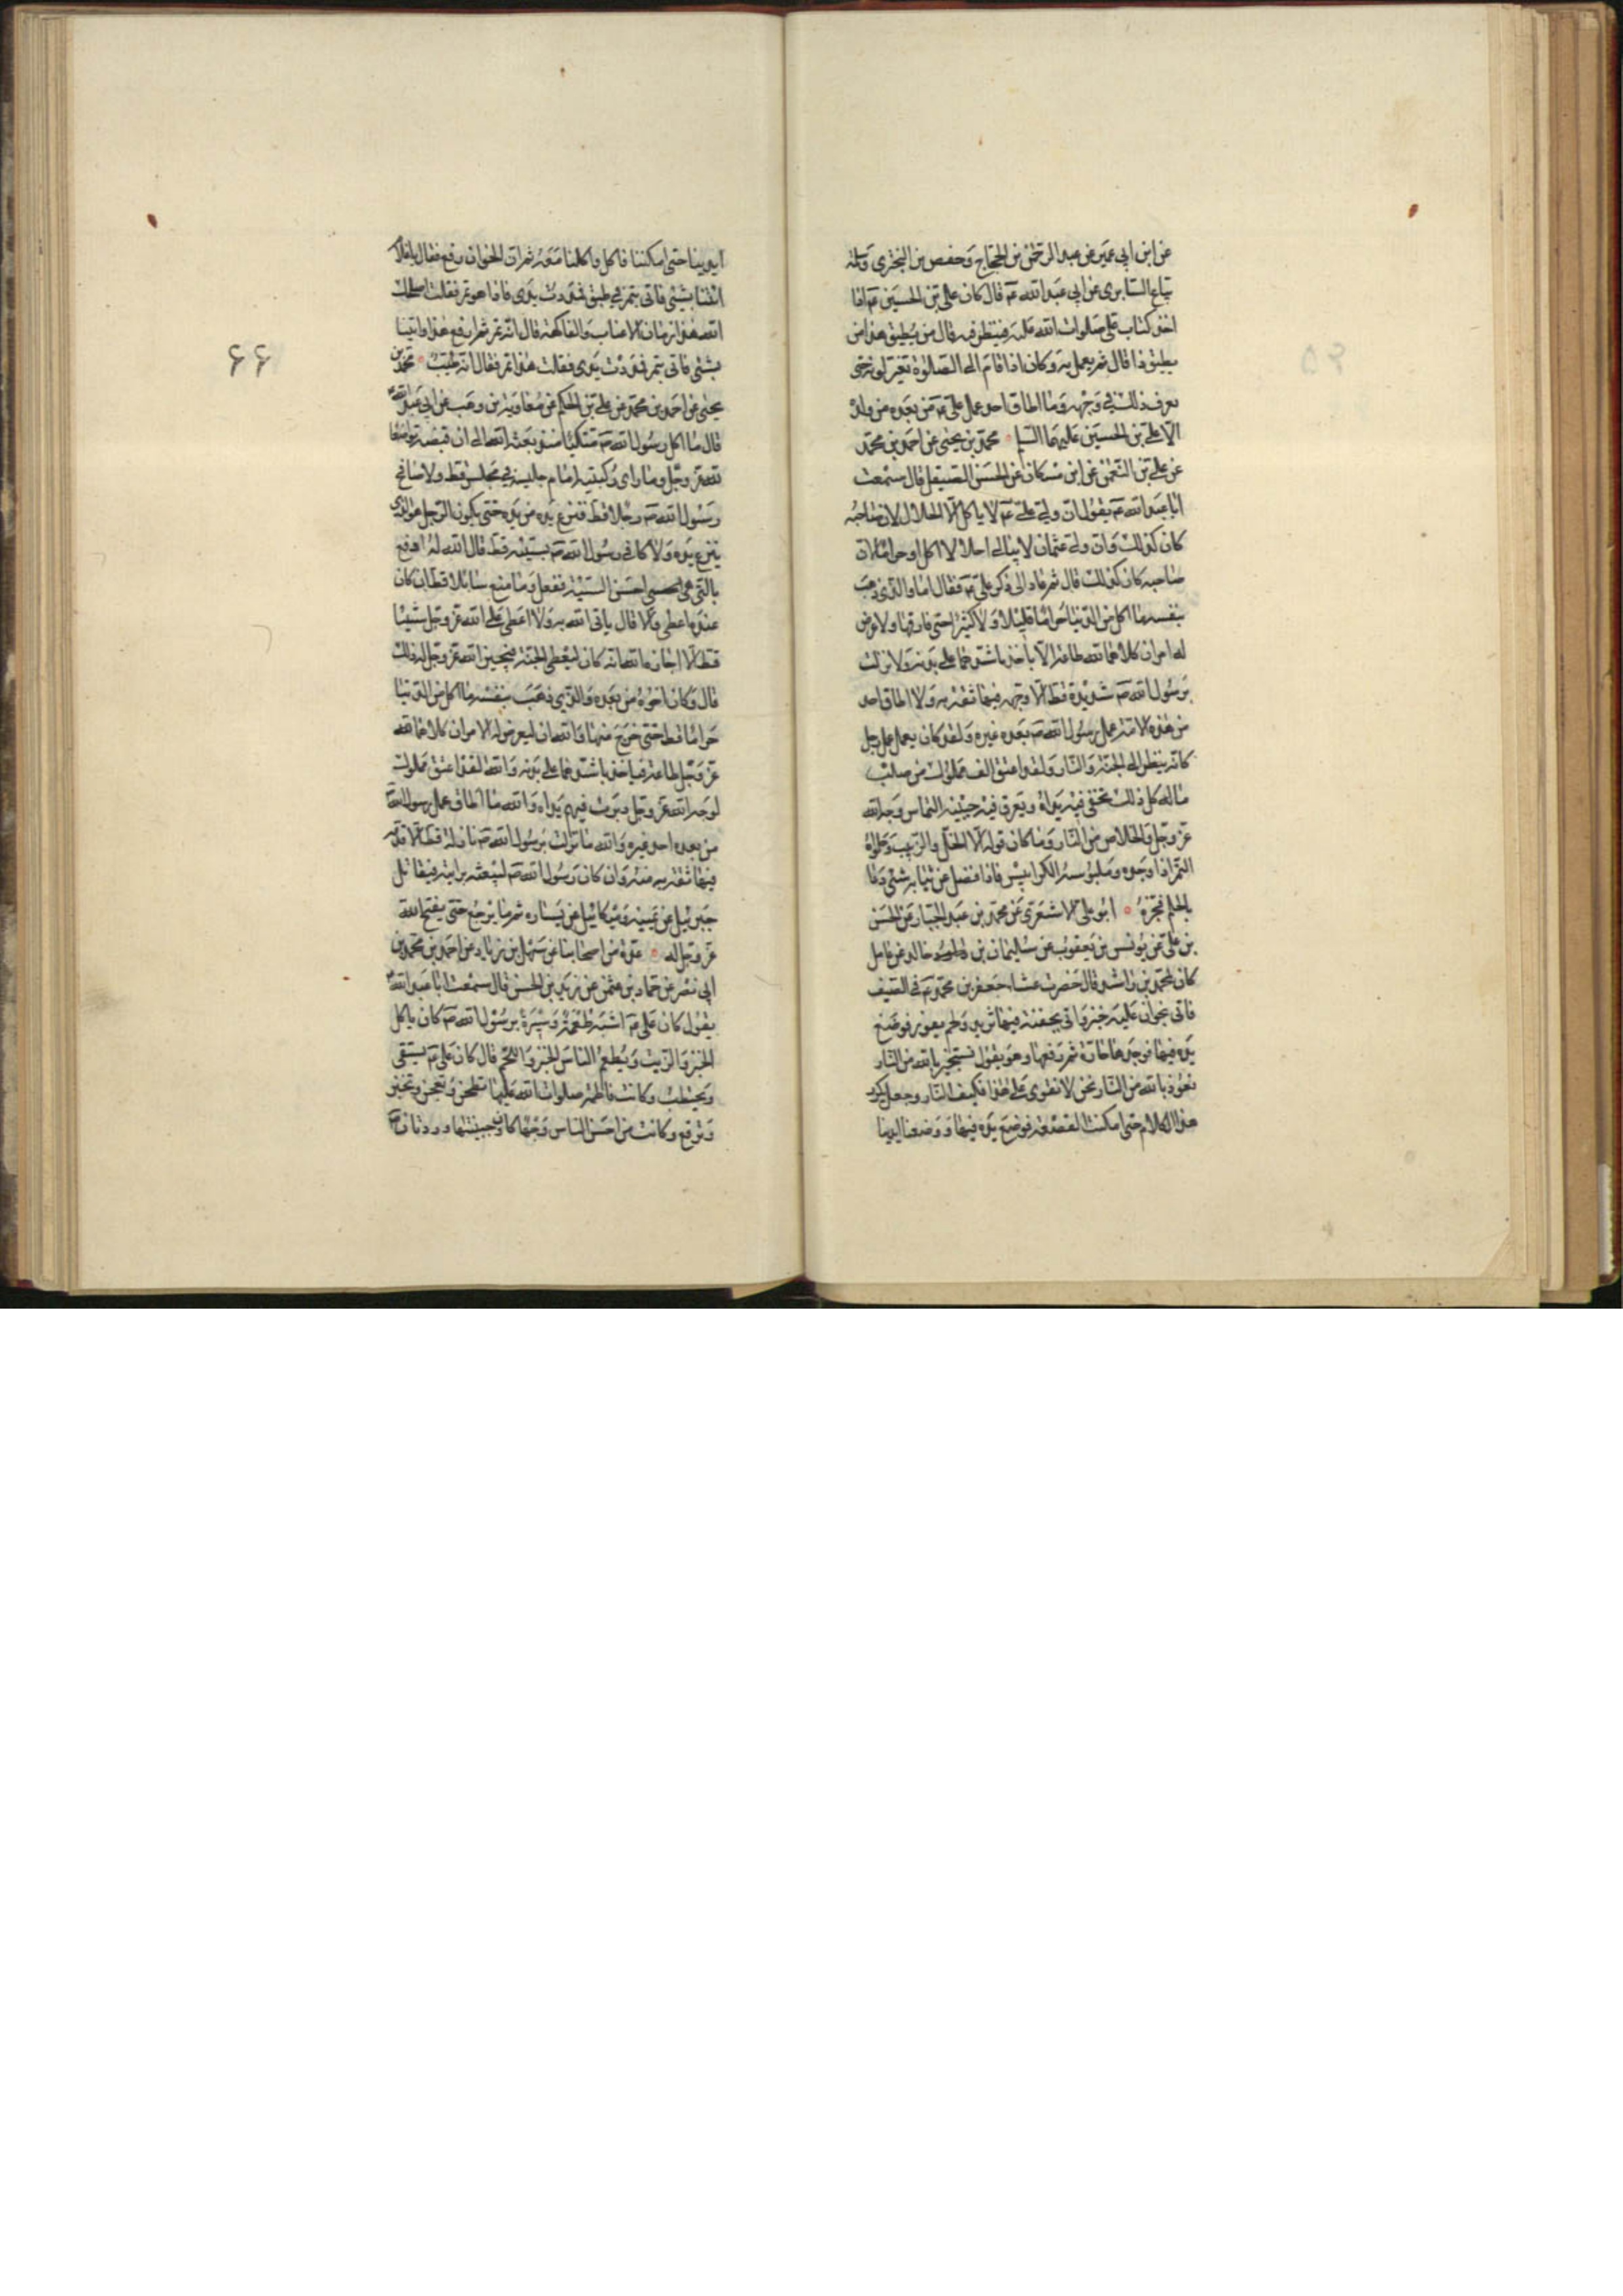 عن ابن ابي عمير عن عبد الرحمن بن الحجاج وحفص بن البختري وسلمة
بياع السابري عن ابي عبد الله ع قال كان علي بن الحسين ع اذا
اخذ كتاب علي صلوات الله عليه فينظر فيه قال من يطيق هذا من
يطيق ذا قال ثم يعمل به وكان اذا قام الى الصلوة تغير لونه حتى
يعرف ذلك في وجهه وما اطاق احد عمل علي ع من بعده من ولده
الا علي بن الحسين عليهما السلام محمد بن يحيى عن احمد بن محمد
عن علي بن النعمن عن ابن مسكان عن الحسن الصيقل قال سمعت
ابا عبد الله ع يقول ان ولي علي ع لا ياكل الا الحلال لان صاحبه
كان كذلك وان ولي عثمان لا يبالي احلالا اكل او حراما لان
صاحبه كان كذلك قال ثم عاد الى ذكر علي ع فقال اما والذي ذهب
بنفسه ما اكل من الدنيا حراما قليلا ولا كثيرا حتى فارقها ولا عرض
له امران كلاهما لله طاعة الا باخذ باشدهما على بدنه ولا نزلت
برسول الله ص شديدة قط الا وجهه فيها ثقة به ولا اطاق احد
من هذه الامة عمل رسول الله ص بعده غيره ولقد كان يعمل عمل رجل
كانه ينظر الى الجنة والنار ولقد اعتق الف مملوك من صلب
ماله كل ذلك تحفى فيه يداه ويعرق فيه جبينه التماس وجه الله
عز وجل والخلاص من النار وما كان قوته الا الخل والزيت وحلواه
التمر اذا وجده وملبوسه الكرابيس فاذا فضل عن ثيابه شئ دعا
بالجلم فجزه ابو علي الاشعري عن محمد بن عبد الجبار عن الحسن
بن علي عن يونس بن يعقوب عن سليمان بن خالد عن عامل
كان لمحمد بن راشد قال حضرت عشاء جعفر بن محمد ع في الصيف
فاتي بخوان عليه خبز واتي بجفنة فيها ثريد ولحم يفور فوضع
يده فيها فوجدها حارة ثم رفعها وهو يقول نستجير بالله من النار
نعوذ بالله من النار نحن لا نقوى على هذا فكيف النار وجعل يكرر
هذا الكلام حتى امكنت القصعة فوضع يده فيها ووضعنا ايدينا
ايدينا حتى امكننا فاكل واكلنا معه ثم ان الخوان رفع فقال يا غلام
ائتنا بشئ فاتي بتمر في طبق فمددت يدي فاذا هو تمر فقلت اصلحك
الله هذا زمان الاعناب والفاكهة قال انه تمر ثم ارفع هذا وائتنا
بشئ فاتي بتمر فمددت يدي فقلت هذا تمر فقال انه طيب محمد بن
يحيى عن احمد بن محمد عن علي بن الحكم عن معاوية بن وهب عن ابي عبد الله ع
قال ما اكل رسول الله ص متكئا منذ بعثه الله الى ان قبضه تواضعا
لله عز وجل وما راى ركبتيه امام جليسه في مجلس قط ولا صافح
رسول الله ص رجلا قط فنزع يده من يده حتى يكون الرجل هو الذي
ينزع يده ولا كافى رسول الله ص بسيئة قط قال الله له ادفع
بالتي هي احسن السيئة ففعل وما منع سائلا قط ان كان
عنده اعطى والا قال ياتي الله به ولا اعطى على الله عز وجل شيئا
قط الا اجازه الله انه كان ليعطي الجنة فيجيز الله عز وجل له ذلك
قال وكان اخوه من بعده والذي ذهب بنفسه ما اكل من الدنيا
حراما قط حتى خرج منها والله ان ليعرض له الامران كلاهما لله
عز وجل طاعة فياخذ باشدهما على بدنه والله لقد اعتق مملوك
لوجه الله عز وجل دبرت فيهم يداه والله ما اطاق عمل رسول الله ص
من بعده احد غيره والله ما نزلت برسول الله ص نازلة قط الا قدمه
فيها ثقة به منه وان كان رسول الله ص ليبعثه برايته فيقاتل
جبرئيل عن يمينه وميكائيل عن يساره ثم ما يرجع حتى يفتح الله
عز وجل له عدة من اصحابنا عن سهل بن زياد عن احمد بن محمد بن
ابي نصر عن حماد بن عثمن عن زيد بن الحسن قال سمعت ابا عبد الله ع
يقول كان علي ع اشبه طعمة وسيرة برسول الله ص كان ياكل
الخبز والزيت ويطعم الناس الخبز واللحم قال كان علي ع يستقي
ويحتطب وكانت فاطمة صلوات الله عليها تطحن وتعجن وتخبز
وترقع وكانت من احسن الناس وجها كان وجنتيها وردتان
۶۶